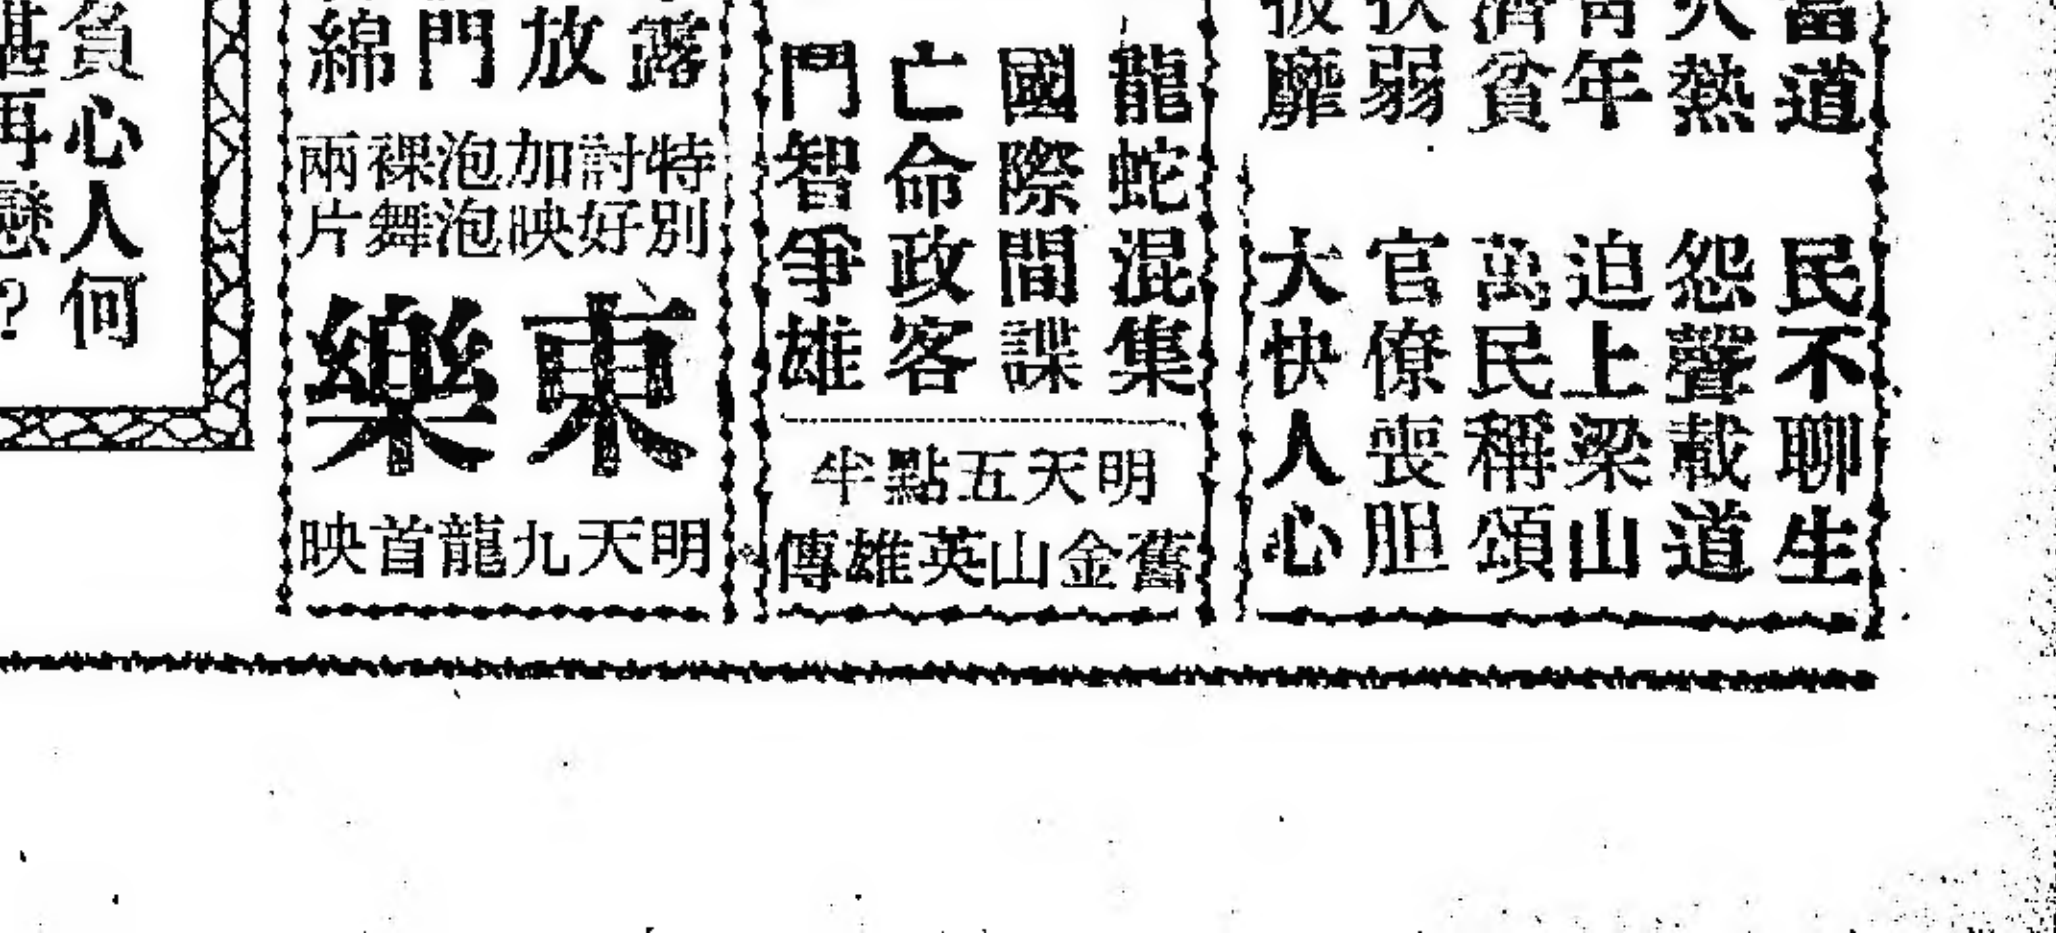 當道
人熱
青年
濟貧
扶弱
披靡
民不聊生
怨聲載道
迫上梁山
萬民稱頌
官僚喪胆
大快人心
龍蛇混集
國際間諜
亡命政客
鬥智爭雄
明天五點半
舊金山英雄傳
露
放
門
綿
特別
討好
加映
泡泡
裸舞
兩片
東樂
明天九龍首映
負心人何
堪再戀?